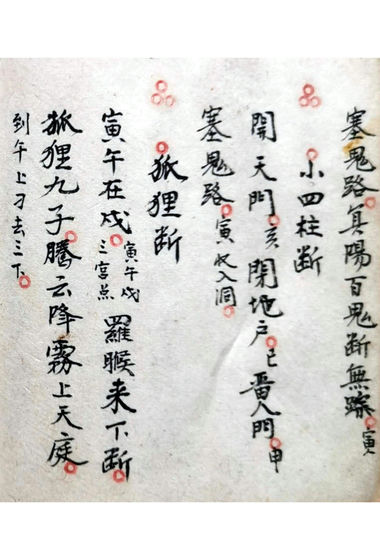 塞鬼路真陽百鬼断無踪寅
小四柱断
開天門亥閉地戶巳人門申
塞鬼路寅收入洞
狐狸断
寅午在戌寅午戌三宫点羅睺来下断
狐狸九子騰云降霧上天庭
到午上刁去三下